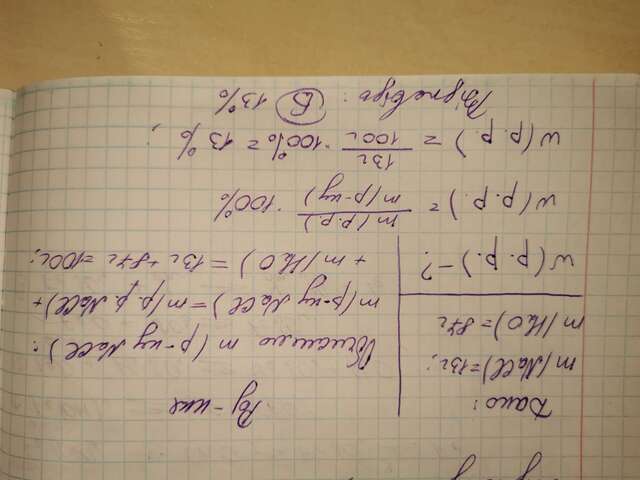 Дано:
m(NaCl)=13г;
m(H₂O)=87г
w(р.р.)-?
Роз-ння
m(р-ну NaCl):
m(р-ну NaCl)=m(р.р. NaCl)+
+ m(H₂O)=13г+87г=100г;
w(р.р.)= m(р.р)/m(р-ну) ·100%
w(р.р.) = 13г/100г ·100%=13%;
Відповідь: Б 13%